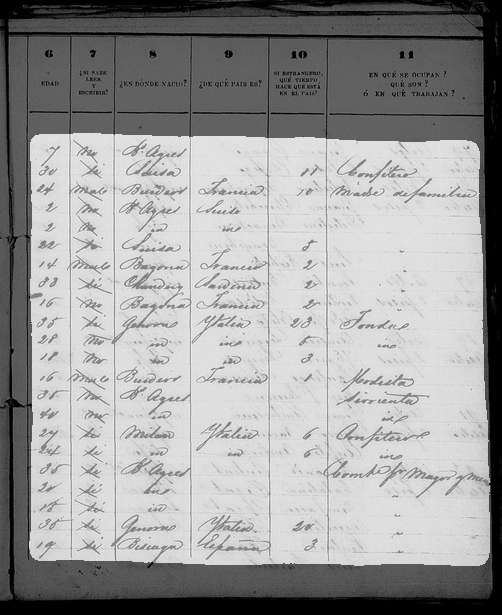 6 7 8 9 10 11
EDAD ¿SI SABE LEER Y ESCRIBIR? ¿EN DÓNDE NACIÓ? ¿DE QUÉ PAIS ES? SI ESTRANGERO, QUÉ TIEMPO HACE QUE ESTÁ EN EL PAIS? EN QUÉ SE OCUPAN? QUÉ SON? Ó EN QUÉ TRABAJAN?
7 No Bs Ayres
30 si Suisa 11 Confitero
24 Burdeos Francia 10 Madre de familia
2 No Bs Ayres Suiso
2 No in in
22 Suisa 8 "
14 Bayona Francia 2 "
33 si 2 "
16 No Bayona Francia 2 "
35 si Genova Ytalia 23 Fonda
28 No in in 5 in
18 No in in 3
16 Burdeos Francia 1 Modista
35 No Bs Ayres Sirvienta
40 No in in
27 si Milan Ytalia 6 Confitero
24 si in in 5 in
35 si Bs Ayres Comte por Mayor y
20 si in "
18 si in "
35 si Genova Ytalia 20 "
19 si Biscaya España 3 "